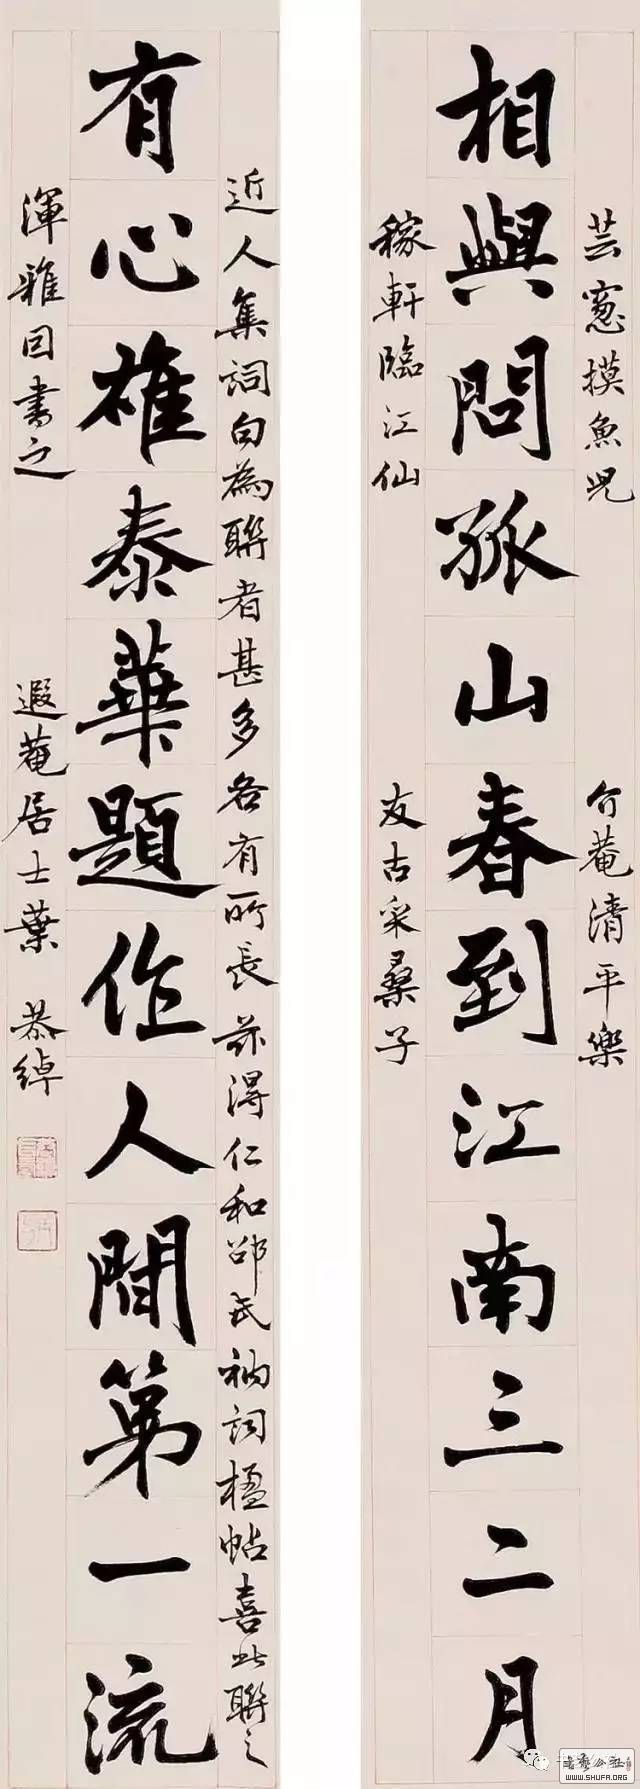 芸窻摸魚兒 介菴清平樂
相與問孤山春到江南三二月
稼軒臨江仙 友古采桑子
近人集詞句為聯者甚多各有所長茲得仁和邵氏衲詞楹帖喜此聯之
有心雄泰華題作人間第一流
渾雅因書之 遐菴居士葉恭綽
WWW.SHUFA.ORG